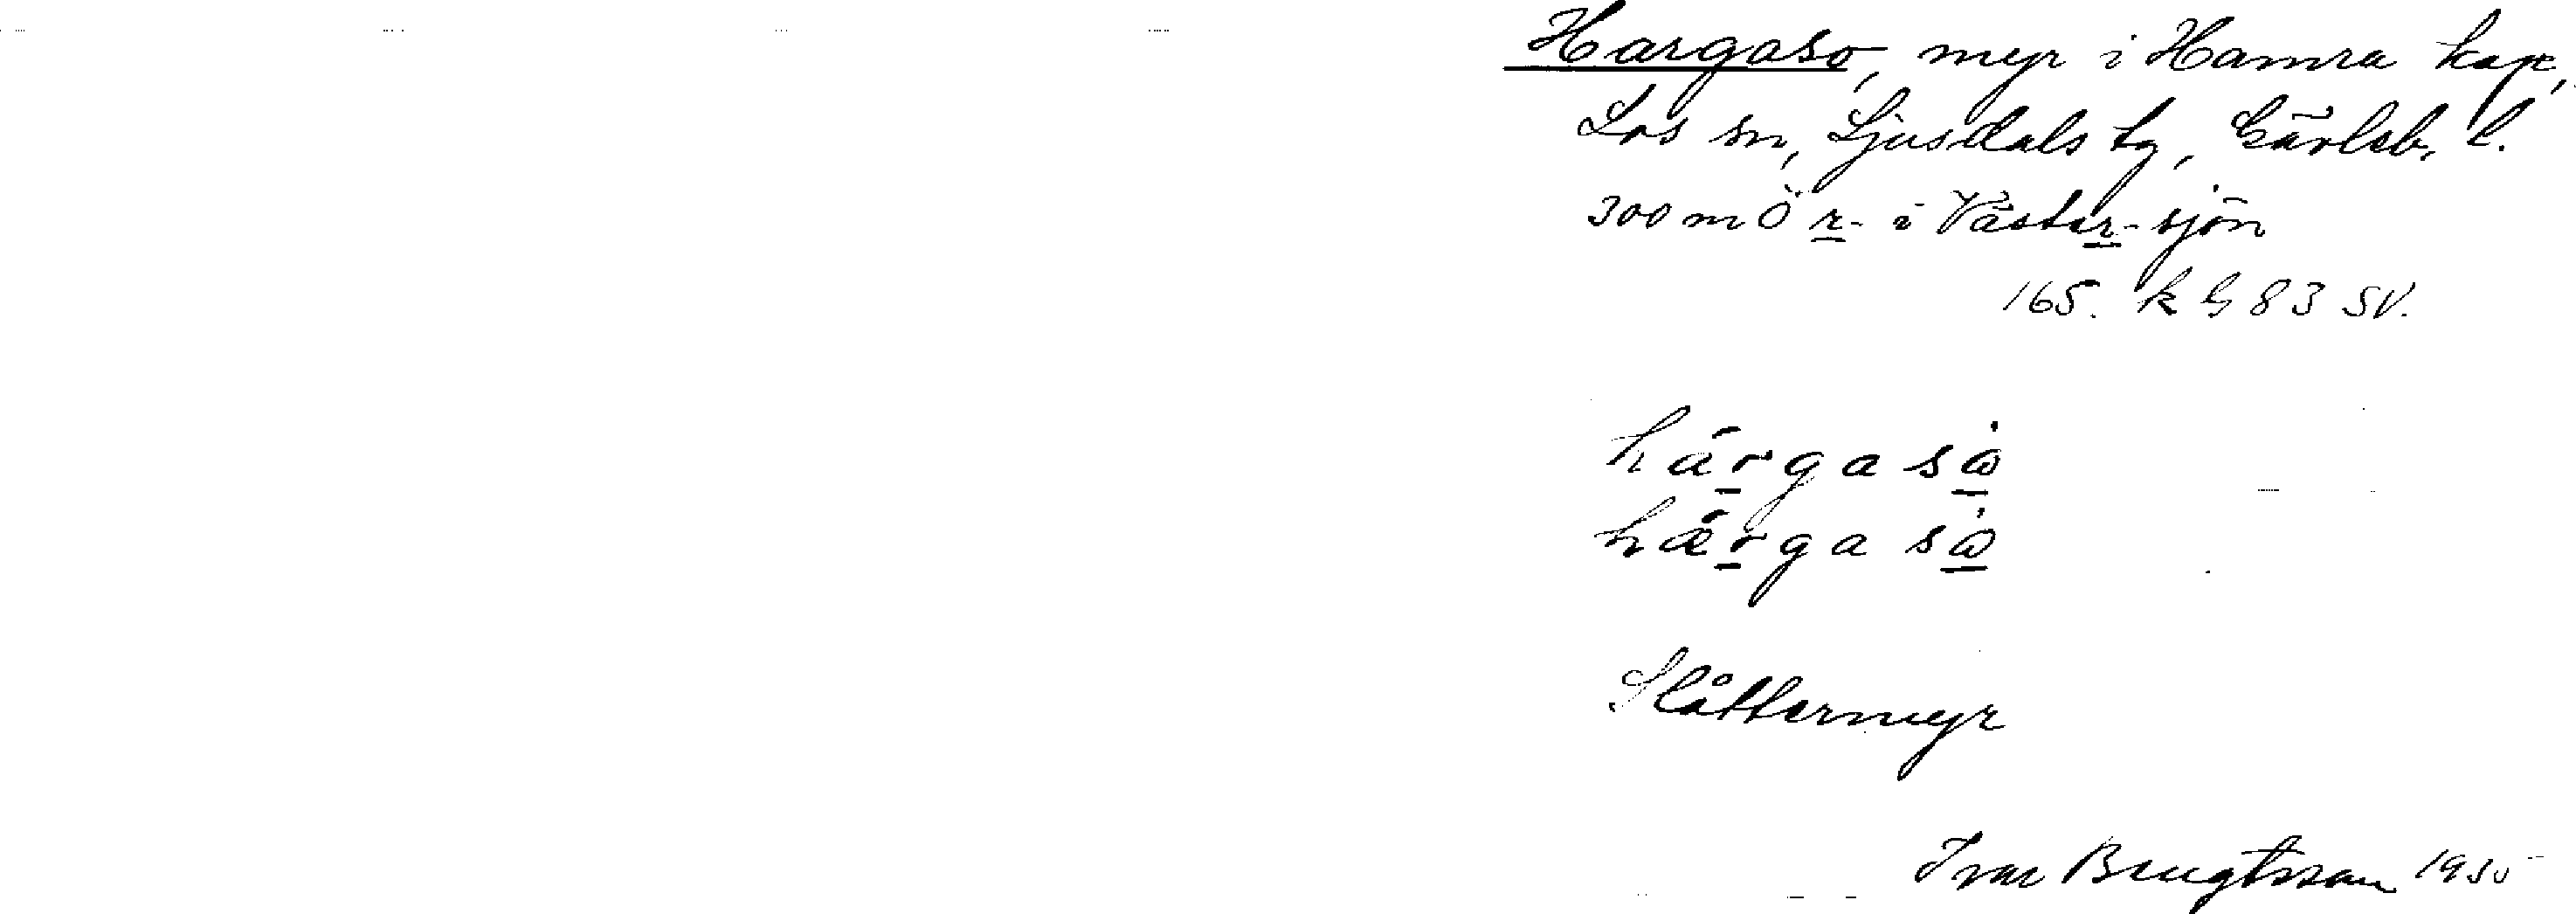 Hargaso, myr i Hamra kap,
Los sn, Ljusdals tg, Gävleb. l.
300 m Ö r i Väster-sjön
165. k G 83 SV.
hárgasò
hǽrgasò
Slåttermyr
Ivar Bengtsson 1935